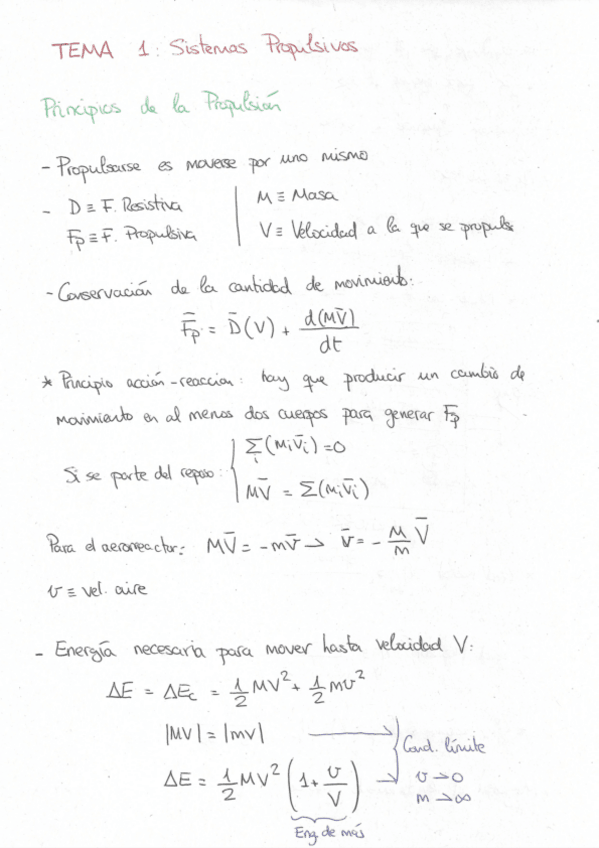 TEMA 1: Sistemas Propulsivos
Principios de la Propulsión
- Propulsarse es moverse por uno mismo
- D ≡ F. Resistiva | M ≡ Masa
Fp ≡ F. Propulsiva | V ≡ Velocidad a la que se propulsa
- Conservación de la cantidad de movimiento:
F̄p = D̄(V) + d(MV̄)/dt
* Principio acción-reacción: hay que producir un cambio de
movimiento en al menos dos cuerpos para generar F̄p
Si se parte del reposo: { Σi(miv̄i) = 0
MV̄ = Σ(miv̄i)
Para el aerorreactor: MV̄ = -mv̄ → v̄ = - M/m V̄
v ≡ vel. aire
- Energía necesaria para mover hasta velocidad V:
ΔE = ΔEc = 1/2 MV² + 1/2 mv²
|MV| = |mv| → } Cond. límite
ΔE = 1/2 MV² (1 + v/V) → v → 0
m → ∞
Eng de más